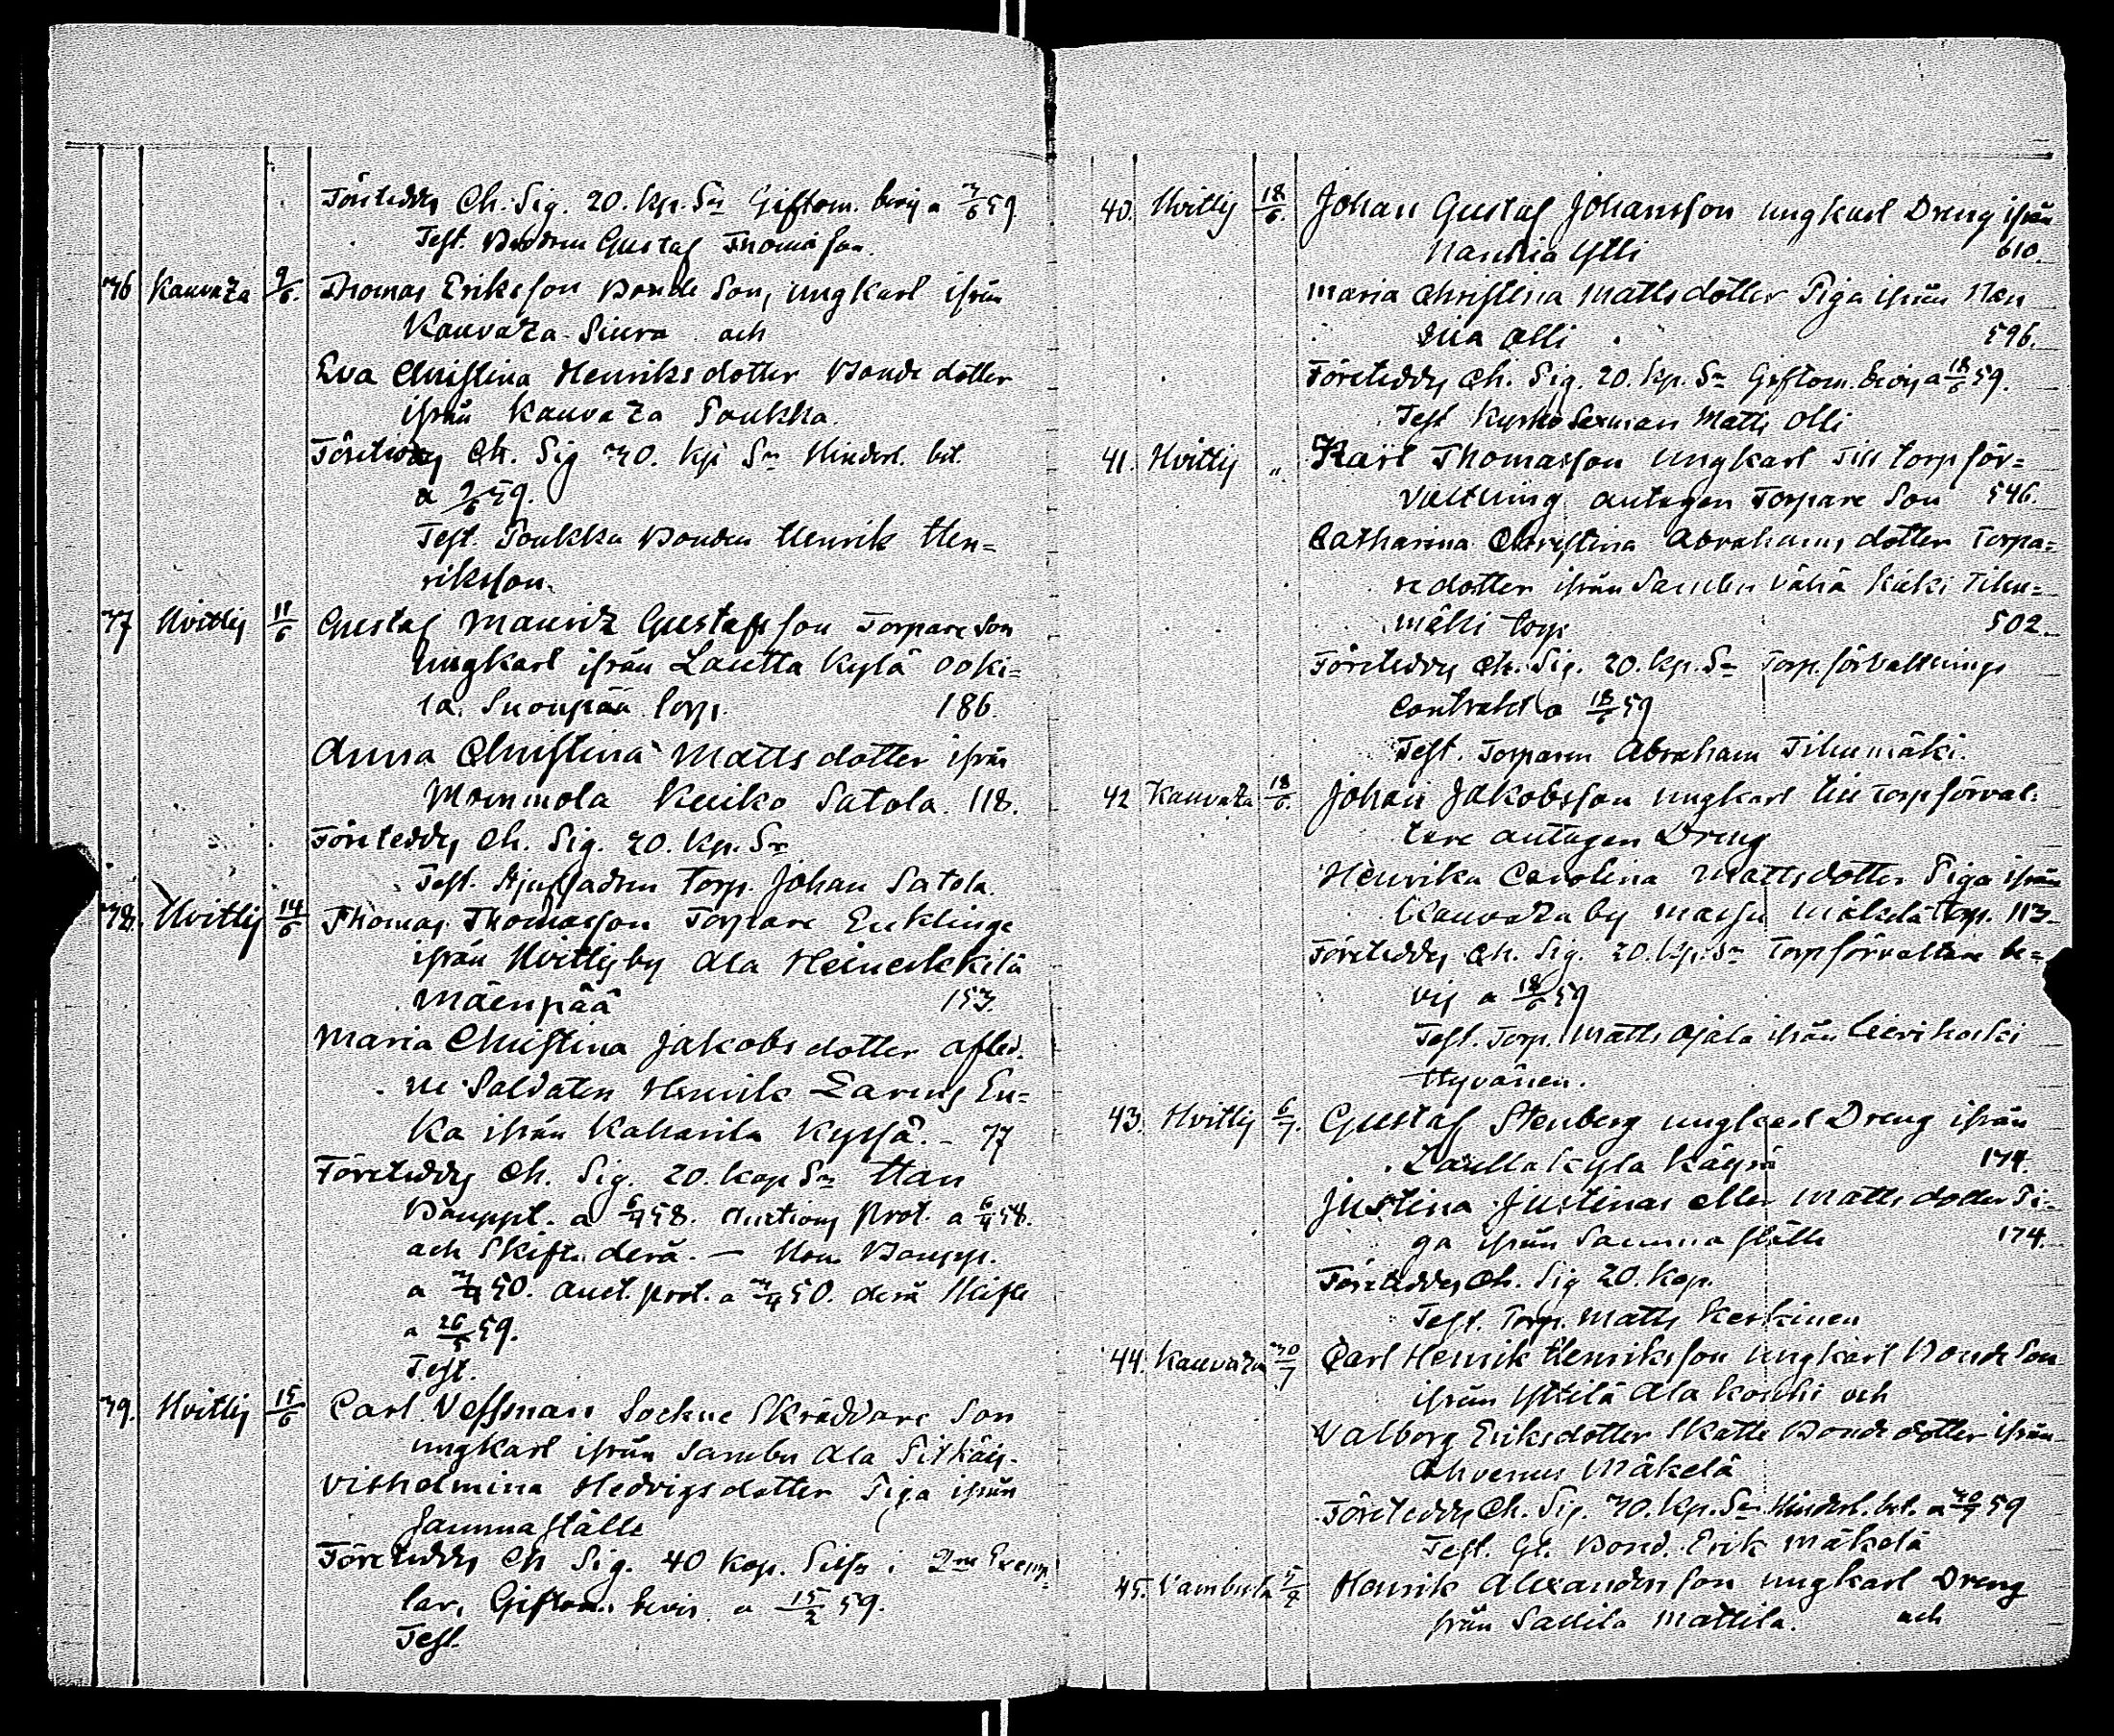 Företeddes Ch. Sig. 20. kp. Sr Giftom. bevis a 3/6 59
Test. Brodren Gustaf Thomasson.
36 Kauvaza 9/6. Thomas Eriksson Bonde Son, ungkarl ifrån
Kauvaza Siura och
Eva Christina Henriksdotter Bonde dotter
ifrån Kauvaza Poukka.
Företeddes Ch. Sig 30. kp Sr Hinderl. bet.
a 9/6 59.
Test. Poukka Bonden Henrik Hen=
riksson.
37 Hvittis 11/6 Gustaf Mauriz Gustafsson Torpare Son
ungkarl ifrån Lautta Kylä Ooki=
la Suonpää torp. 186.
Anna Christina Mattsdotter ifrån
Mommola Kuiko Satola. 118.
Företeddes Ch. Sig. 20. kp. Sr
Test. Torp. Johan Satola.
38. Hvittis 14/6 Thomas Thomasson Torpare Enklinge
ifrån Hvittisby Ala Heinickkilä
Mäenpää 153.
Maria Christina Jakobsdotter afled.
ne Soldaten Henrik Larens En=
ka ifrån Kaharila Kyssä. - 77
Företeddes Ch. Sig. 20. kop Sr Han
Bouppt. a 6/4 58. Auctions Prot. a 6/4 58.
och Skifte derå. — Hon Boupp.
a 3/4 50. Auct. prot. a 3/4 50. derå Skifte
a 26/5 59.
Test.
39. Hvittis 15/6 Carl Vessman Sockne Skräddare Son
ungkarl ifrån Sambu Ala Pitkäis.
Vilhelmina Hedvigsdotter Piga ifrån
Samma ställe
Företeddes Ch Sig. 40 kop. Silfr i 2ne Exemp=
lar, Giftom. bevis a 15/2 59.
Test.
40. Hvittis 18/6. Johan Gustaf Johansson ungkarl Dreng ifrån
Nanhia Ylli 610.
Maria Christina Mattsdotter Piga ifrån Nan
hia Olli 596.
Företeddes Ch. Sig. 20. kp. Sr Giftom. bevis a 18/6 59.
Test Kyrko Sexman Matts Olli
41. Hvittis " Karl Thomasson ungkarl Till torp för=
valtning antagen Torpare Son 546.
Catharina Christina Abrahams dotter Torpa=
re dotter ifrån Sambu Vähä Kiiki Tilu=
mäki torp 502.
Företeddes Ch. Sig. 20. kp. Sr Torp. förvaltnings
Contrakt a 18/6 59
Test. Torparen Abraham Tilumäki.
42 Kauvaza 18/6. Johan Jakobsson ungkarl till Torp förval=
tare antagen Dreng
Henrika Carolina Mattsdotter Piga ifrån
Kauvaza by Mäkelä Torp. 113.
Företeddes Ch. Sig. 20. kp. Sr Torp förvaltare be=
vis a 18/6 59
Test. Torp. Matts Ojala ifrån Lievikoski
Hyvänen.
43. Hvittis 6/7. Gustaf Stenberg ungkarl Dreng ifrån
Lautta kyla Käyrä 174.
Justina Justinas eller Matts dotter Pi=
ga ifrån Samma ställe 174.
Företeddes Ch. Sig 20. kop.
Test. Torp. Matts Keskinen
44. Kauvaza 30/7 Carl Henrik Henriksson ungkarl Bonde Son
ifrån Yttilä Ala Koschi och
Valborg Eriksdotter Skatte Bonde dotter ifrån
Ahvenus Mäkelä
Företeddes Ch. Sig. 30. kp. Sr Hinderl. bet. a 30/7 59
Test. Gl. Bond. Erik Mäkelä
45. Vambula Henrik Alexandersson ungkarl Dreng
från Sallila Mattila. och